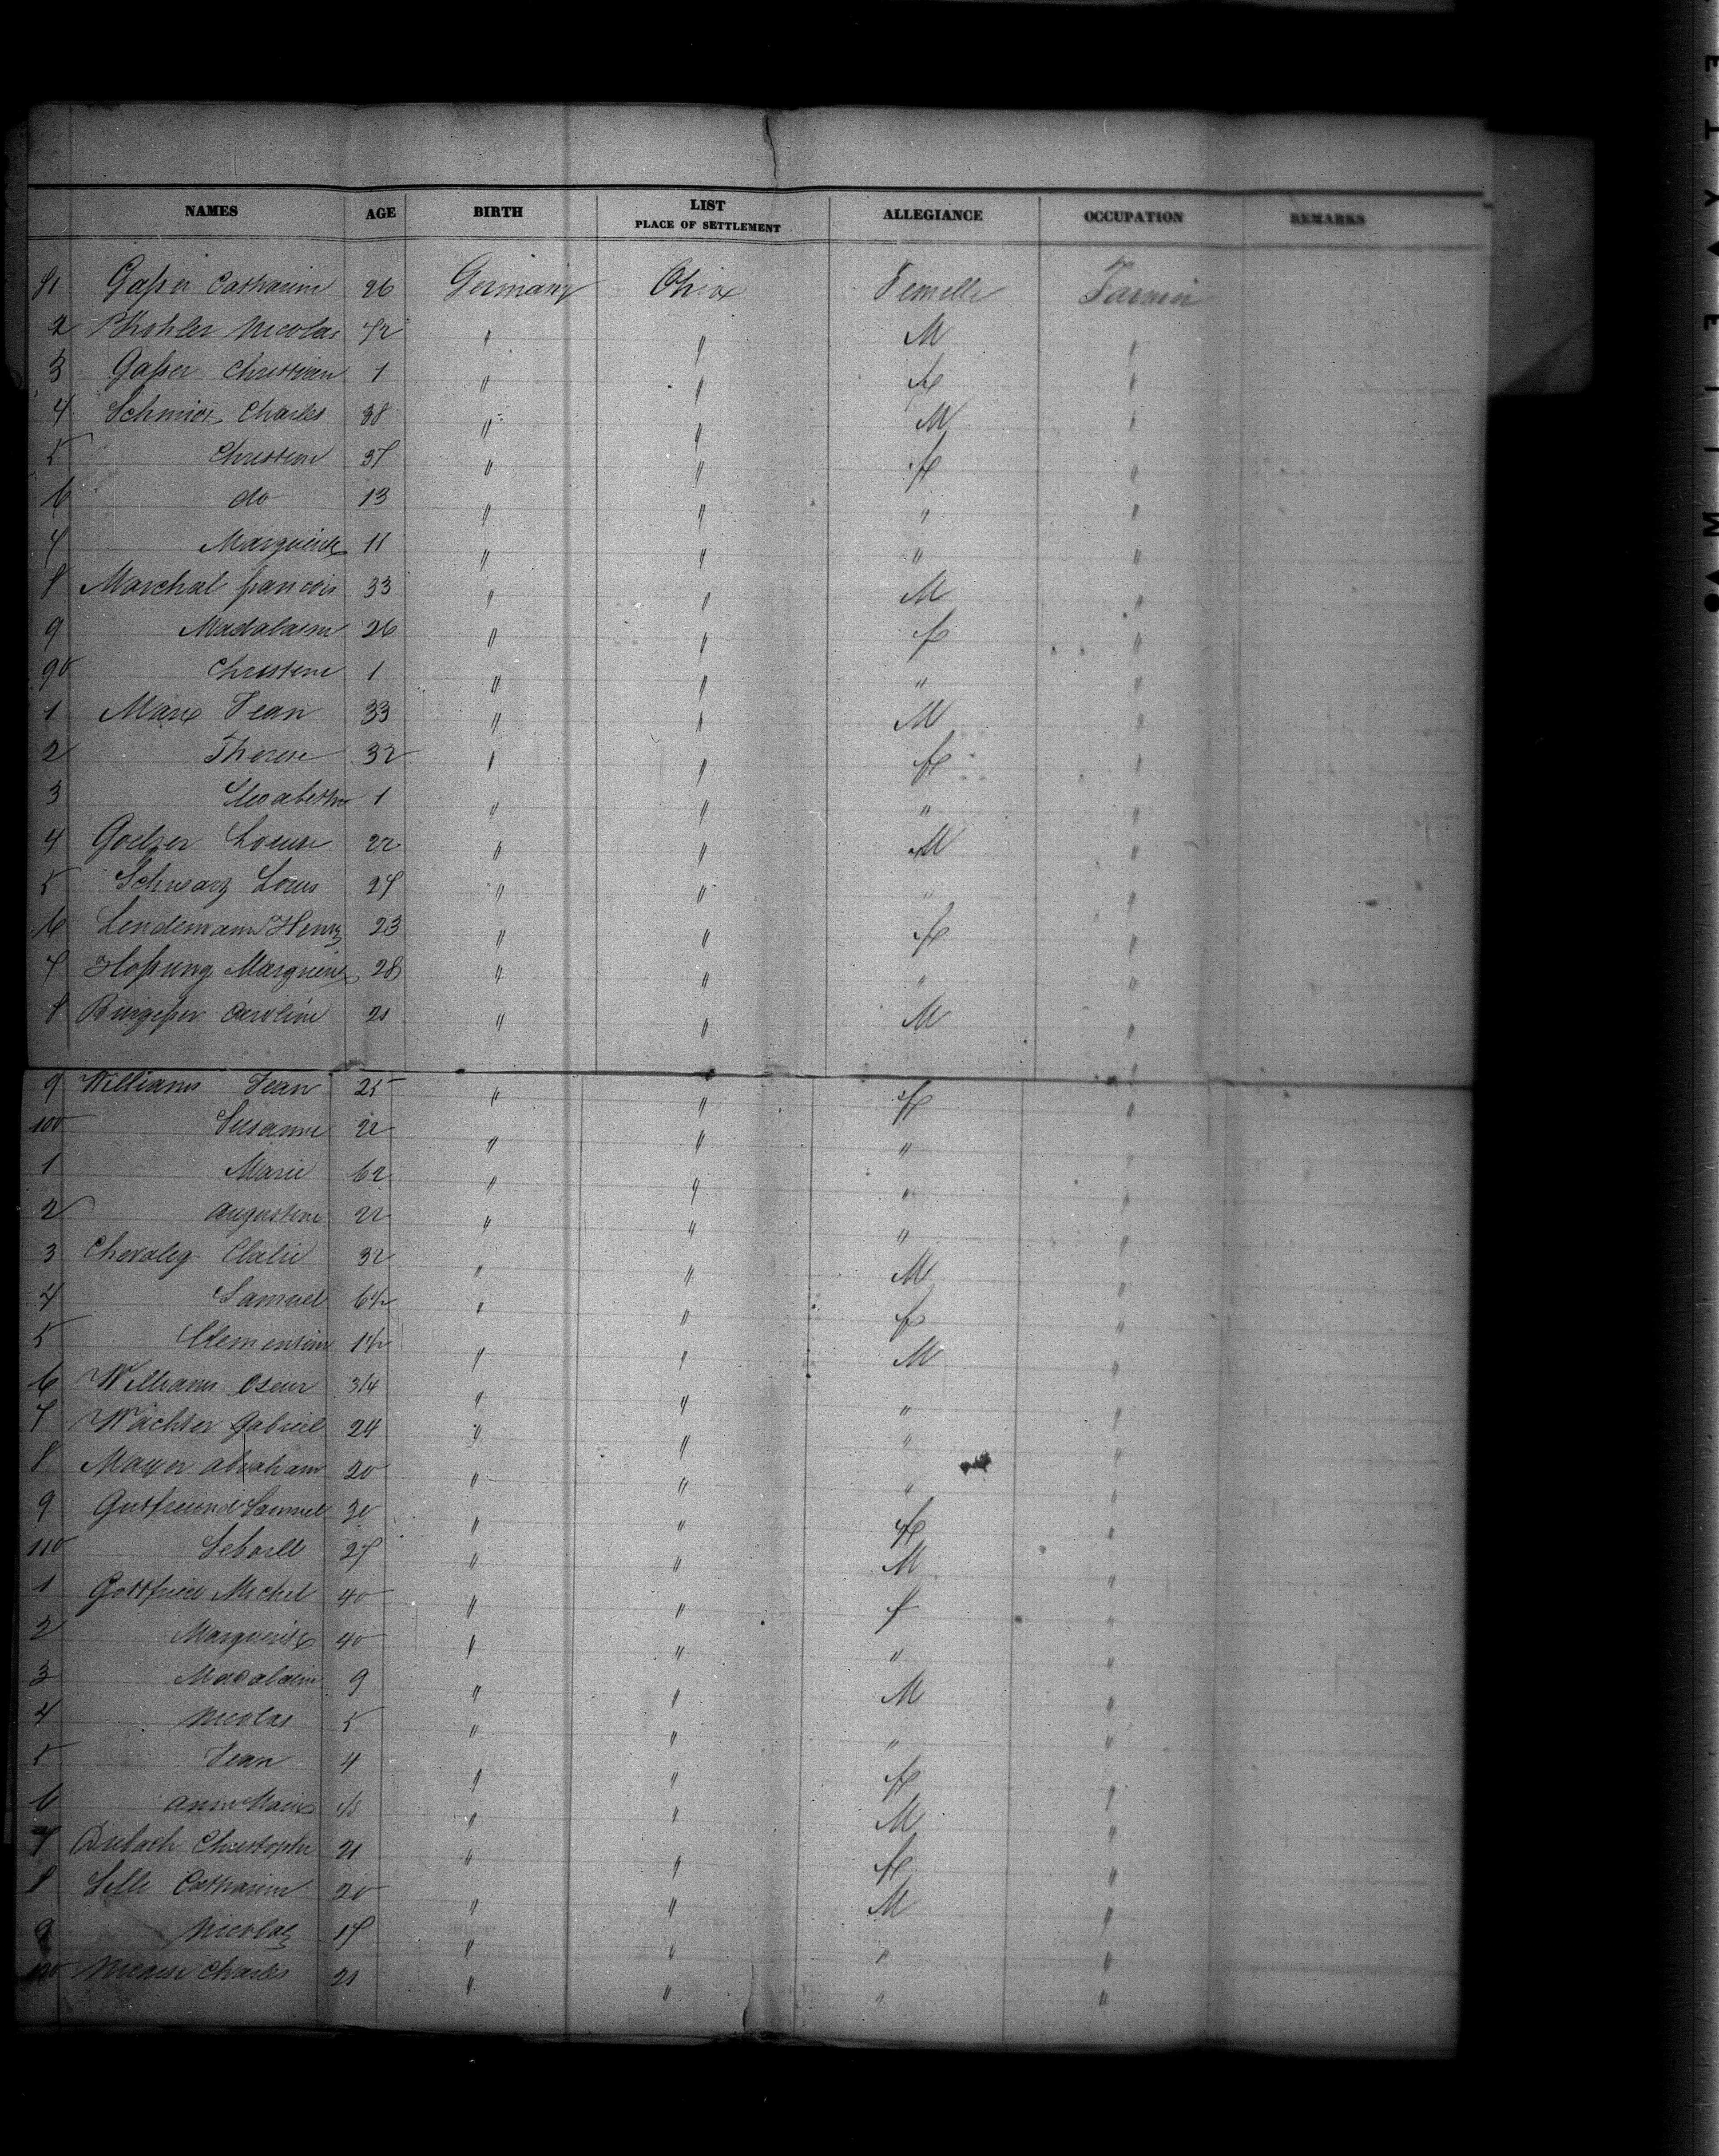 NAMES AGE BIRTH LIST PLACE OF SETTLEMENT ALLEGIANCE OCCUPATION REMARKS
81 Gasser Catharine 26 Germany Ohio Femelle Farmer
2 Kohler Nicolas 42 " " M "
3 Gasser Christian 1 " " f "
4 Schmidt Charles 38 " " M "
5 Christine 37 " " f "
6 do 13 " " " "
7 Marguerite 11 " " " "
8 Marchal francois 33 " " M "
9 Madalaine 26 " " f "
90 Christine 1 " " " "
1 Marx Jean 33 " " M "
2 Therese 32 " " f "
3 Elisabeth 1 " " " "
4 Goelzer Louise 22 " " M "
5 Schwarz Louis 27 " " " "
6 Lendemann Henry 23 " " f "
7 Marguerite 28 " " " "
8 Caroline 21 " " M "
9 Williams Jean 25 " " f "
100 Susanne 22 " " " "
1 Marie 62 " " " "
2 Augustine 22 " " " "
3 32 " " M "
4 Samuel " " f "
5 Clementine " " M "
6 Williams Oscur " " " "
7 Wachter Gabriel 24 " " " "
8 Mayer Abraham 20 " " " "
9 Gutfreund Samuel 30 " " f "
110 27 " " M "
1 Gottfried Michel 40 " " f "
2 Marguerite 40 " " " "
3 Madalaine 9 " " M "
4 Nicolas 5 " " " "
5 Jean 4 " " f "
6 Anne Marie " " M "
7 Christophe 21 " " f "
8 Selle Catharine 20 " " M "
9 Nicolas 17 " " " "
120 Charles 21 " " " "